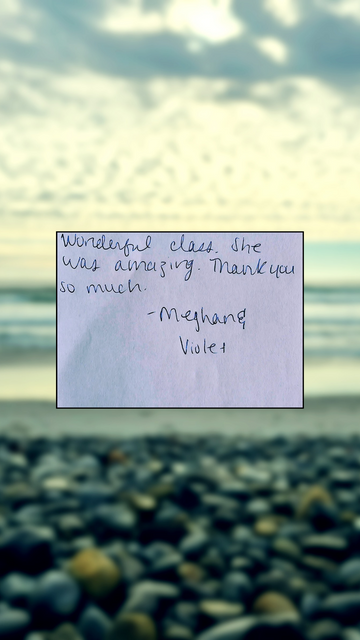 Wonderful class. She
was amazing. Thank you
so much.
- Meghan &
Violet